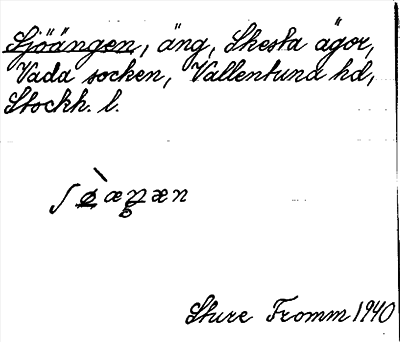 Sjöängen, äng, Skesta ägor,
Vada socken, Vallentuna hd,
Stockh. l.
Sture Fromm 1940